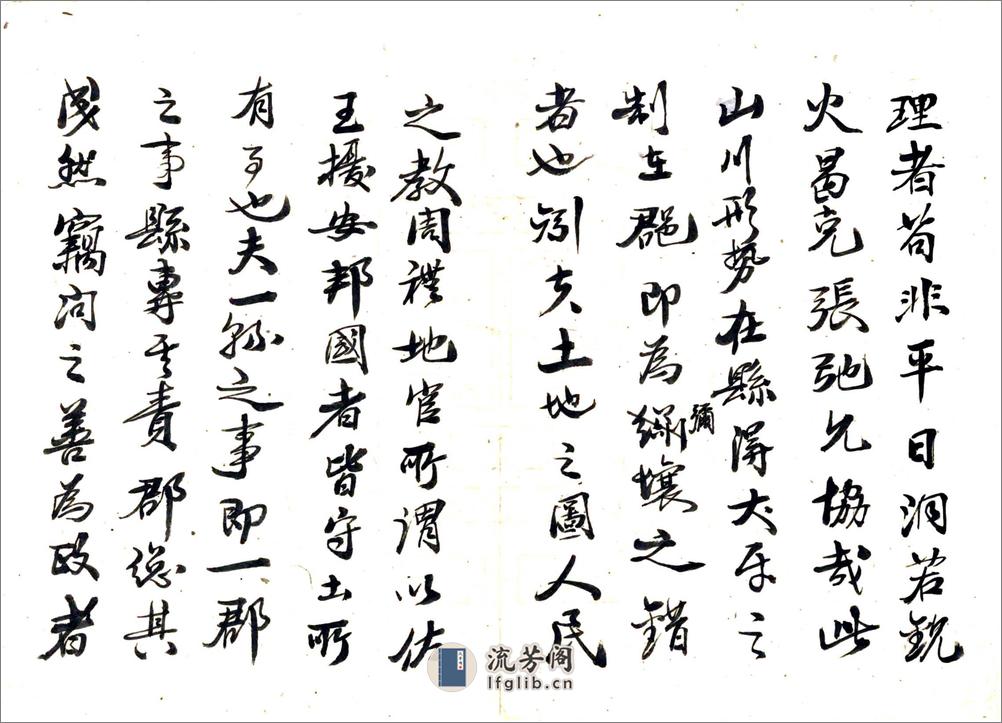 理者苟非平日洞若觀
火曷克張弛允協哉此
山川形勢在縣得犬牙之
制在郡即為繡壤之錯
彌
者也矧夫土地之圖人民
之教周禮地官所謂以佐
王擾安邦國者皆守土所
有事也夫一縣之事即一郡
之事縣專其責郡總其
成然竊聞之善為政者
流芳阁
lfglib.cn